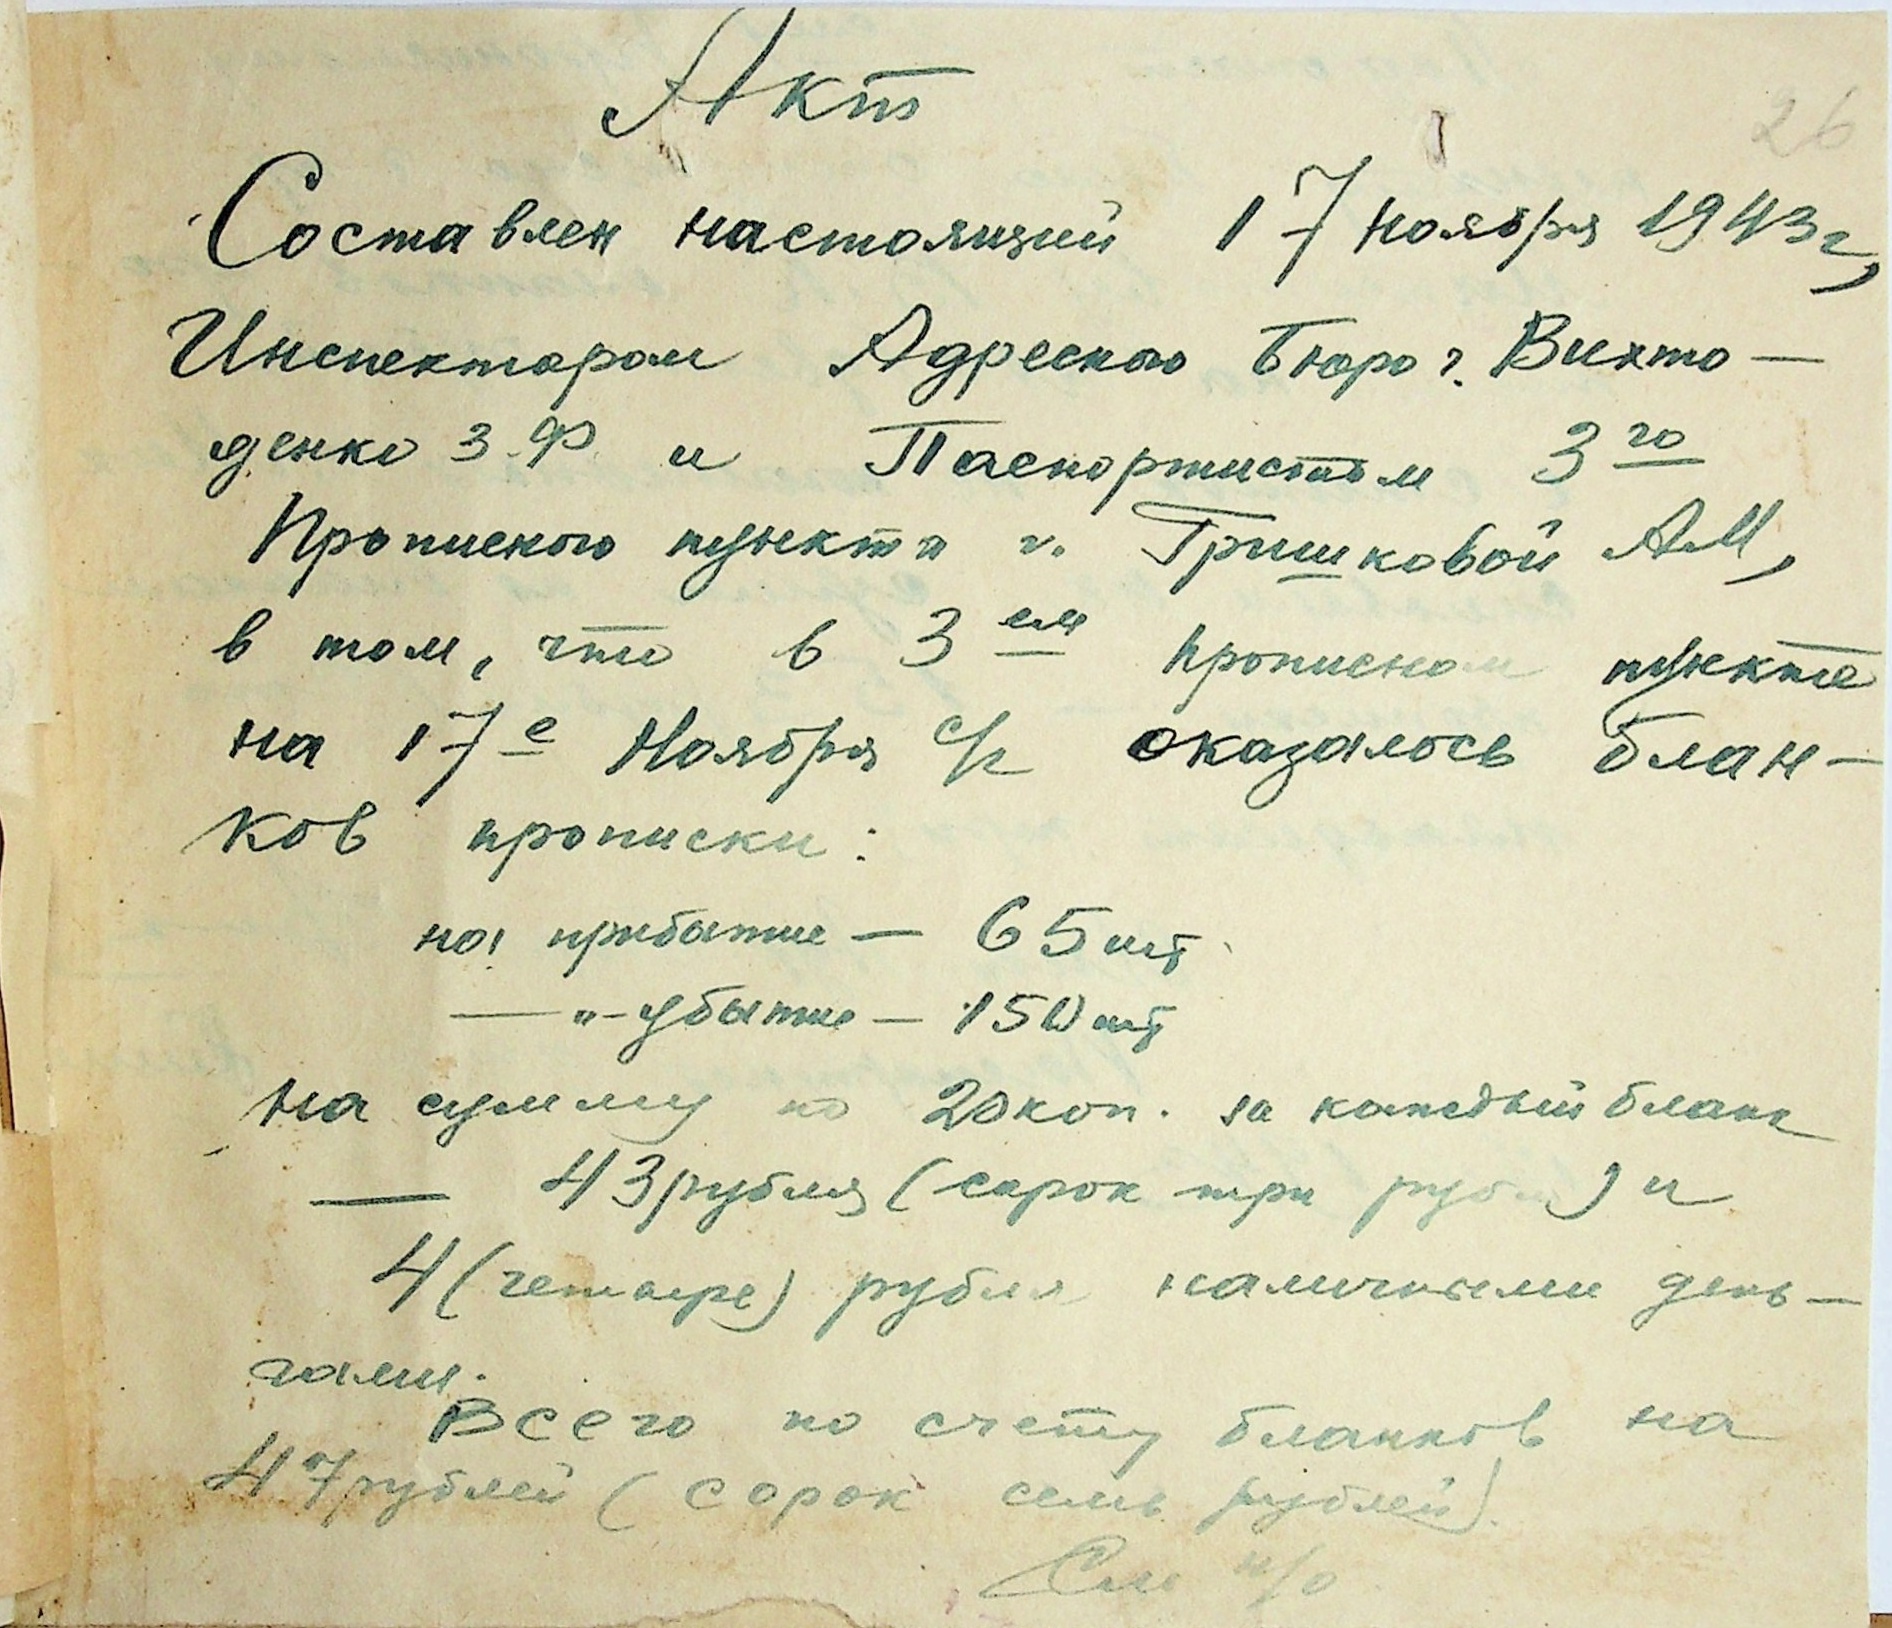 26
Акт
Составлен настоящий 17 ноября 1943 г,
Инспектором Адресного Бюро г. Вихто-
денко З.Ф и Паспортистом 3го
Прописного пункта г. Гришковой А.М,
в том, что в 3ем прописном пункте
на 17е Ноября с/г оказалось блан-
ков прописки:
на прибытие — 65 шт.
— " — убытие — 150 шт
на сумму по 20 коп. за каждый бланк
— 43 рубля (сорок три рубля) и
4 (четыре) рубля наличными день-
гами.
Всего по счету бланков на
47 рублей (сорок семь рублей).
См н/о